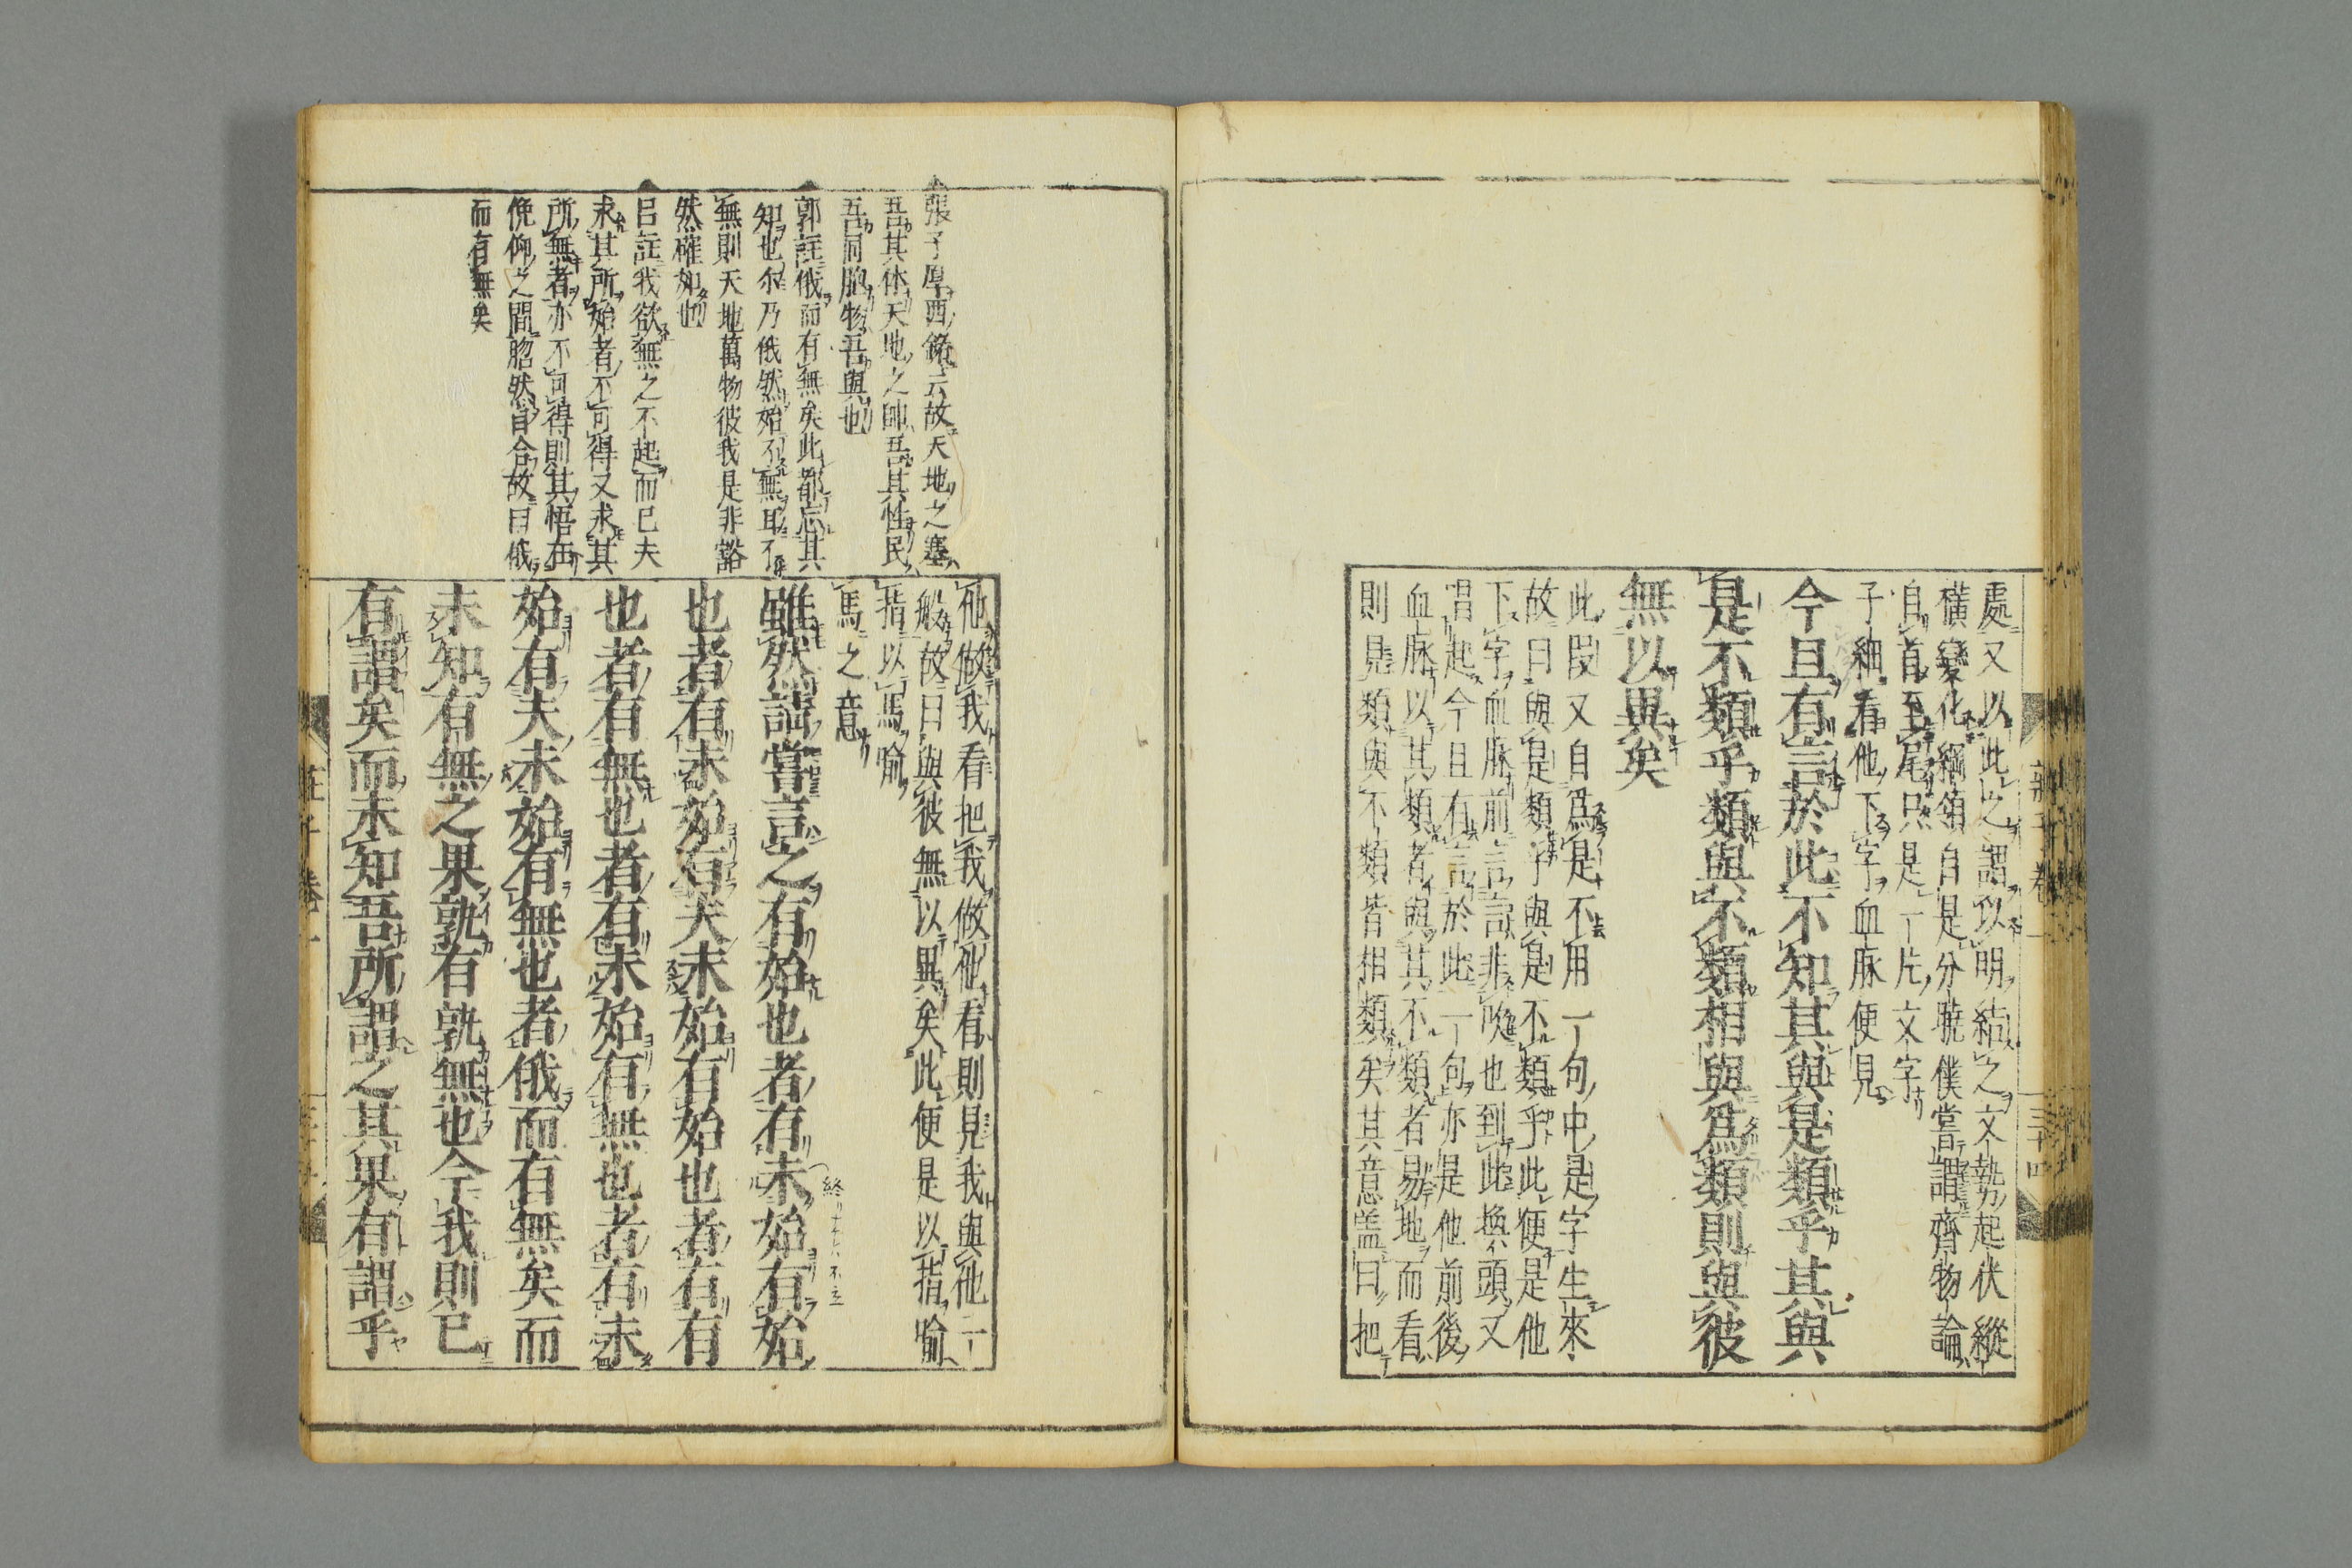 處又以此之謂以明結之文勢起伏縱
橫變化綱領自是分曉僕嘗謂齊物論
自首至尾只是一片文字
子細看他下字血脉便見
今且有言於此不知其與是類乎其與
是不類乎類與不類相與爲類則與彼
無以異矣
此段又自爲是不用一句中是字生來
故曰與是類乎與是不類乎此便是他
下字血脉前言言非吹也到此換頭又
唱起今且有言於此一句亦是他前後
血脉以其類者與其不類者易地而看
則見類與不類皆相類矣其意盖曰把
張子厚西銘云故天地之塞
吾其体天地之帥吾其性民
吾同胞物吾與也
郭註俄而有無矣此都忘其
知也尔乃俄然始不無耳不
無則天地萬物彼我是非豁
然確如也
吕註我欲無之不起而已夫
求其所始者不可得又求其
所無者亦不可得則其悟在
俛仰之間脗然自合故曰俄
而有無矣
他做我看把我做他看則見我與他一
般故曰與彼無以異矣此便是以指喻
指以馬喻
馬之意
雖然請嘗言之有始也者有未始有始
也者有未始有夫未始有始也者有有
也者有無也者有未始有無也者有未
始有夫未始有無也者俄而有無矣而
未知有無之果孰有孰無也今我則已
有謂矣而未知吾所謂之其果有謂乎
莊子卷一